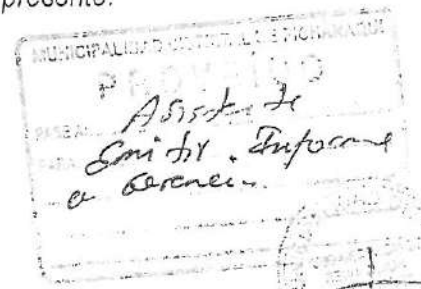 presente.
MUNICIPALIDAD DISTRITAL DE PICHANAQUI
PROVEIDO
PASE A
Asistente
PARA
Emitir Informe
a Gerencia.